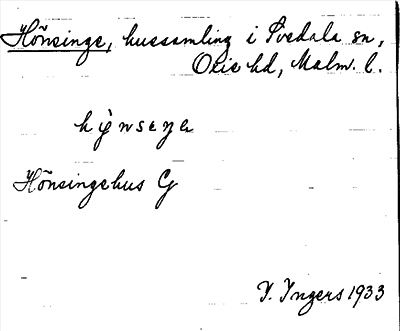 Hönsinge, hussamling i Svedala sn,
Oxie hd, Malm. l.
Hönsingehus G
I. Ingers 1933